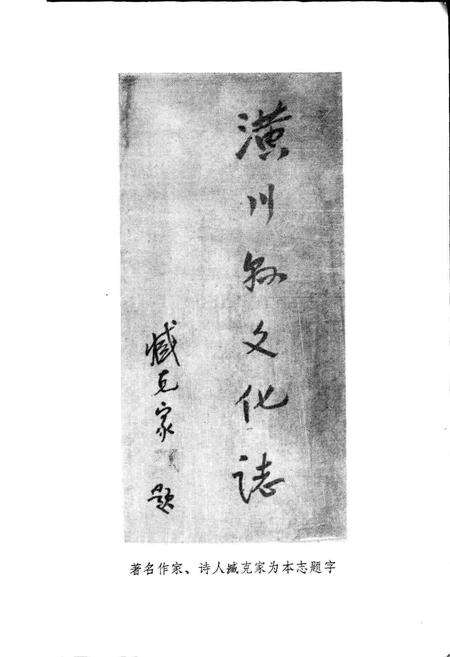 潢川县文化誌
臧克家 题
著名作家、诗人臧克家为本志题字